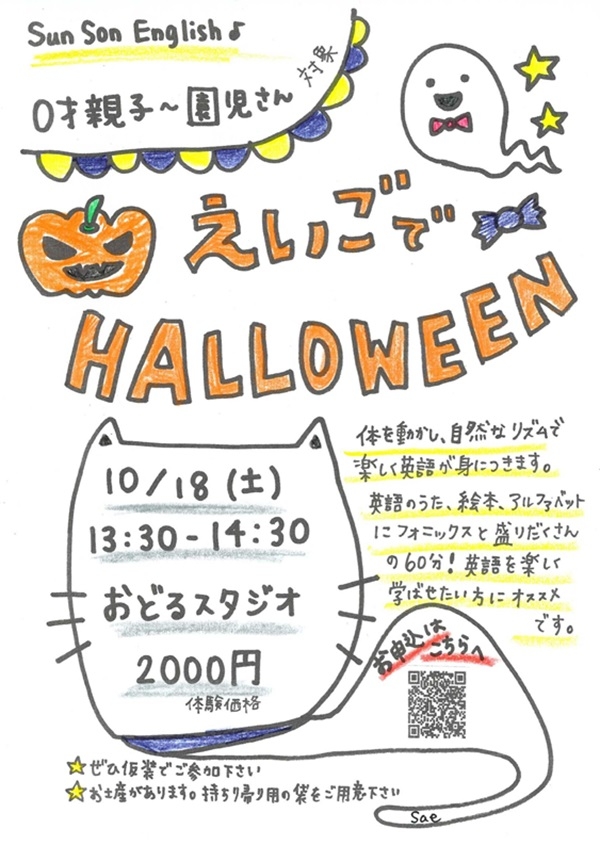 Sun Son English♪
対象
0才親子～園児さん
えいごで
HALLOWEEN
10/18(土)
13:30-14:30
おどるスタジオ
2000円
体験価格
体を動かし、自然なリズムで
楽しく英語が身につきます。
英語のうた、絵本、アルファベット
にフォニックスと盛りだくさん
の60分!英語を楽しく
学ばせたい方にオススメ
です。
お申込は
こちらへ
ぜひ仮装でご参加下さい
お土産があります。持ち帰り用の袋をご用意下さい
Sae